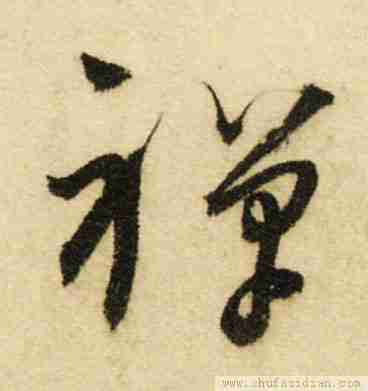 禅
www.shufazidian.com